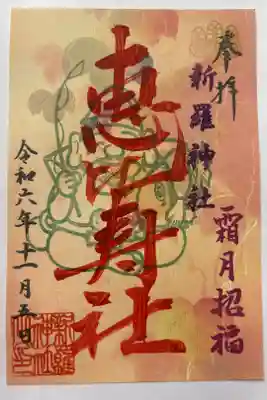 奉拝
新羅神社
霜月招福
恵比寿社
令和六年十一月五日